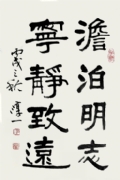 澹泊明志
寧靜致遠
丙戌之秋
淳一